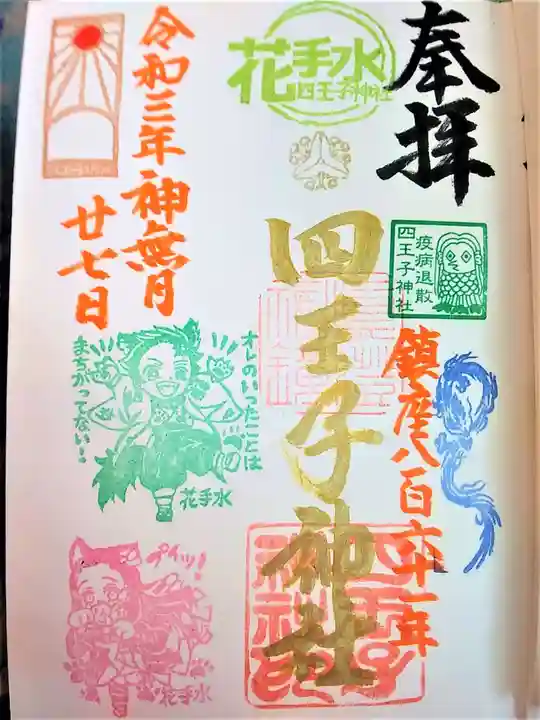 奉拝
疫病退散
四王子神社
鎮座八百六十一年
花手水
四王子神社
四王子神社
令和三年神無月
廿七日
オレのいったことは
まちがってない!
花手水
プイッ!
花手水